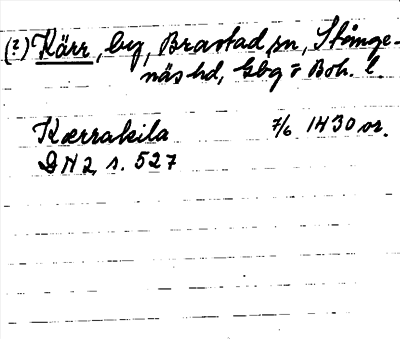 (?) Kärr, by, Brastad sn, Stånge-
näs hd, Gbg o Boh. l.
Kærrakila 7/6 1430 or.
DN 2, s. 527